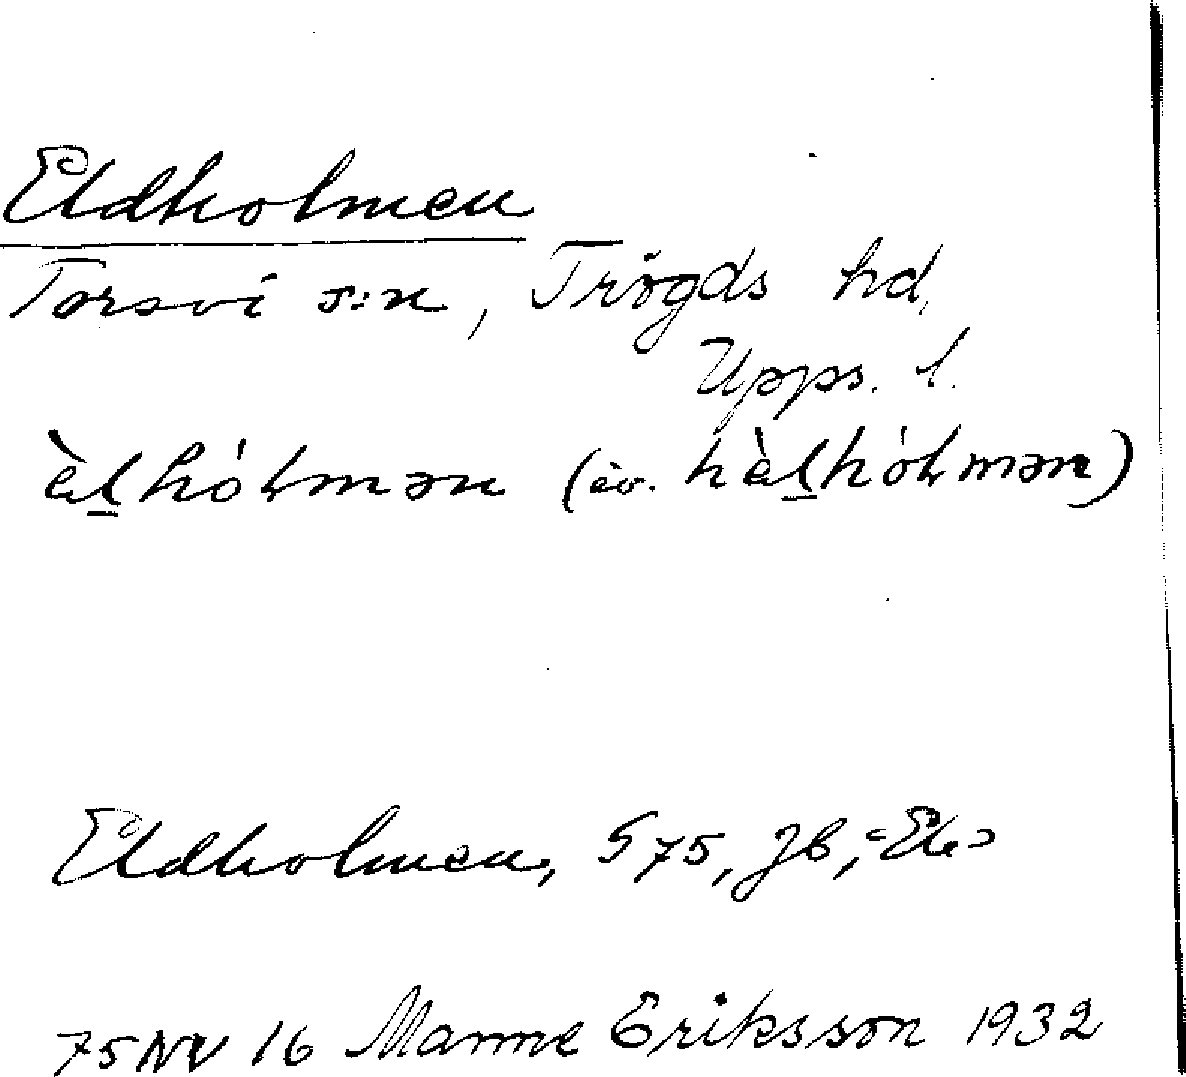 Eldholmen
Torsvi s:n, Trögds hd,
Upps. l.
èl̲hólmən (äv. hèl̲hólmən)
Eldholmen, S 75, JB,
75 NV 16 Manne Eriksson 1932